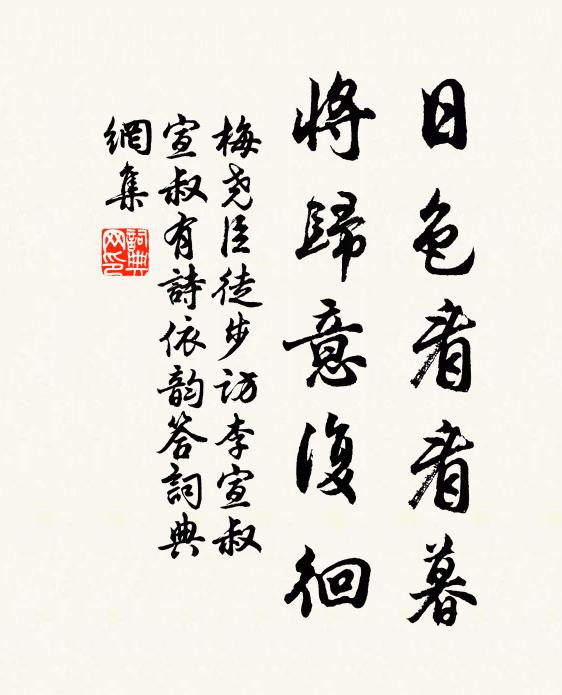 日色看看暮
將歸意復徊
梅尧臣徒步訪李宣叔
宣叔有詩依韵答詞典
網集
詞典
网印